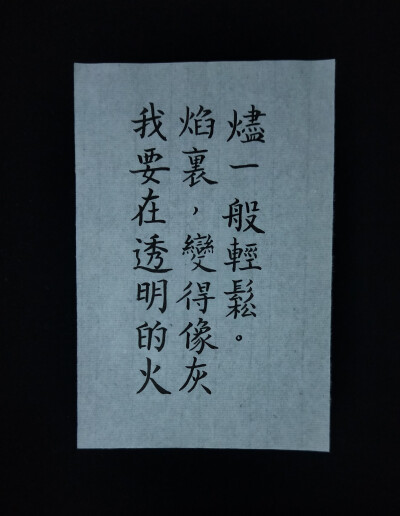 我要在透明的火
焰裏，變得像灰
燼一般輕鬆。